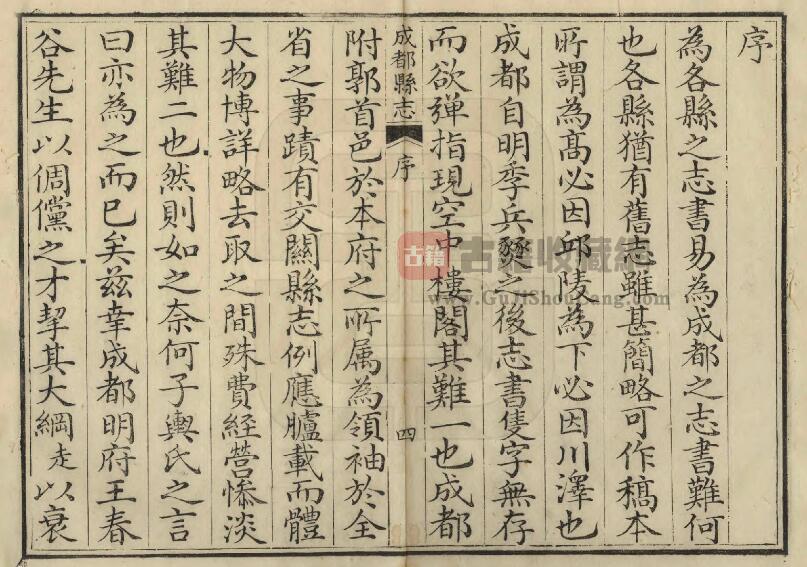 序
為各縣之志書易為成都之志書難何
也各縣猶有舊志雖甚簡略可作稿本
所謂為高必因邱陵為下必因川澤也
成都自明季兵燹之後志書隻字無存
而欲彈指現空中樓閣其難一也成都
成都縣志
序
四
附郭首邑於本府之所属為領袖於全
省之事蹟有交關縣志例應臚載而體
大物博詳略去取之間殊費經營慘淡
其難二也然則如之奈何子輿氏之言
曰亦為之而已矣兹幸成都明府王春
谷先生以倜儻之才挈其大綱走以衰
古籍
古籍收藏網
www.GuJiShouCang.com